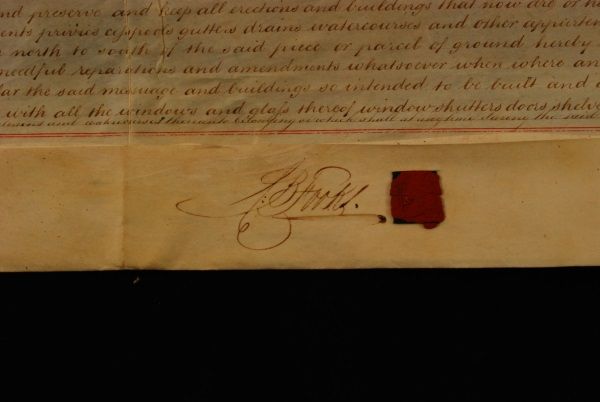 and preserve and keep all erections and buildings that now are or
privies cesspools gutters drains watercourses and other
north to south of the said piece or parcel of ground hereby
needful reparations and amendments whatsoever when where an
the said messuage and buildings so intended to be built and
with all the windows and glass thereof window shutters doors shelve
belonging or which shall at any time during the said